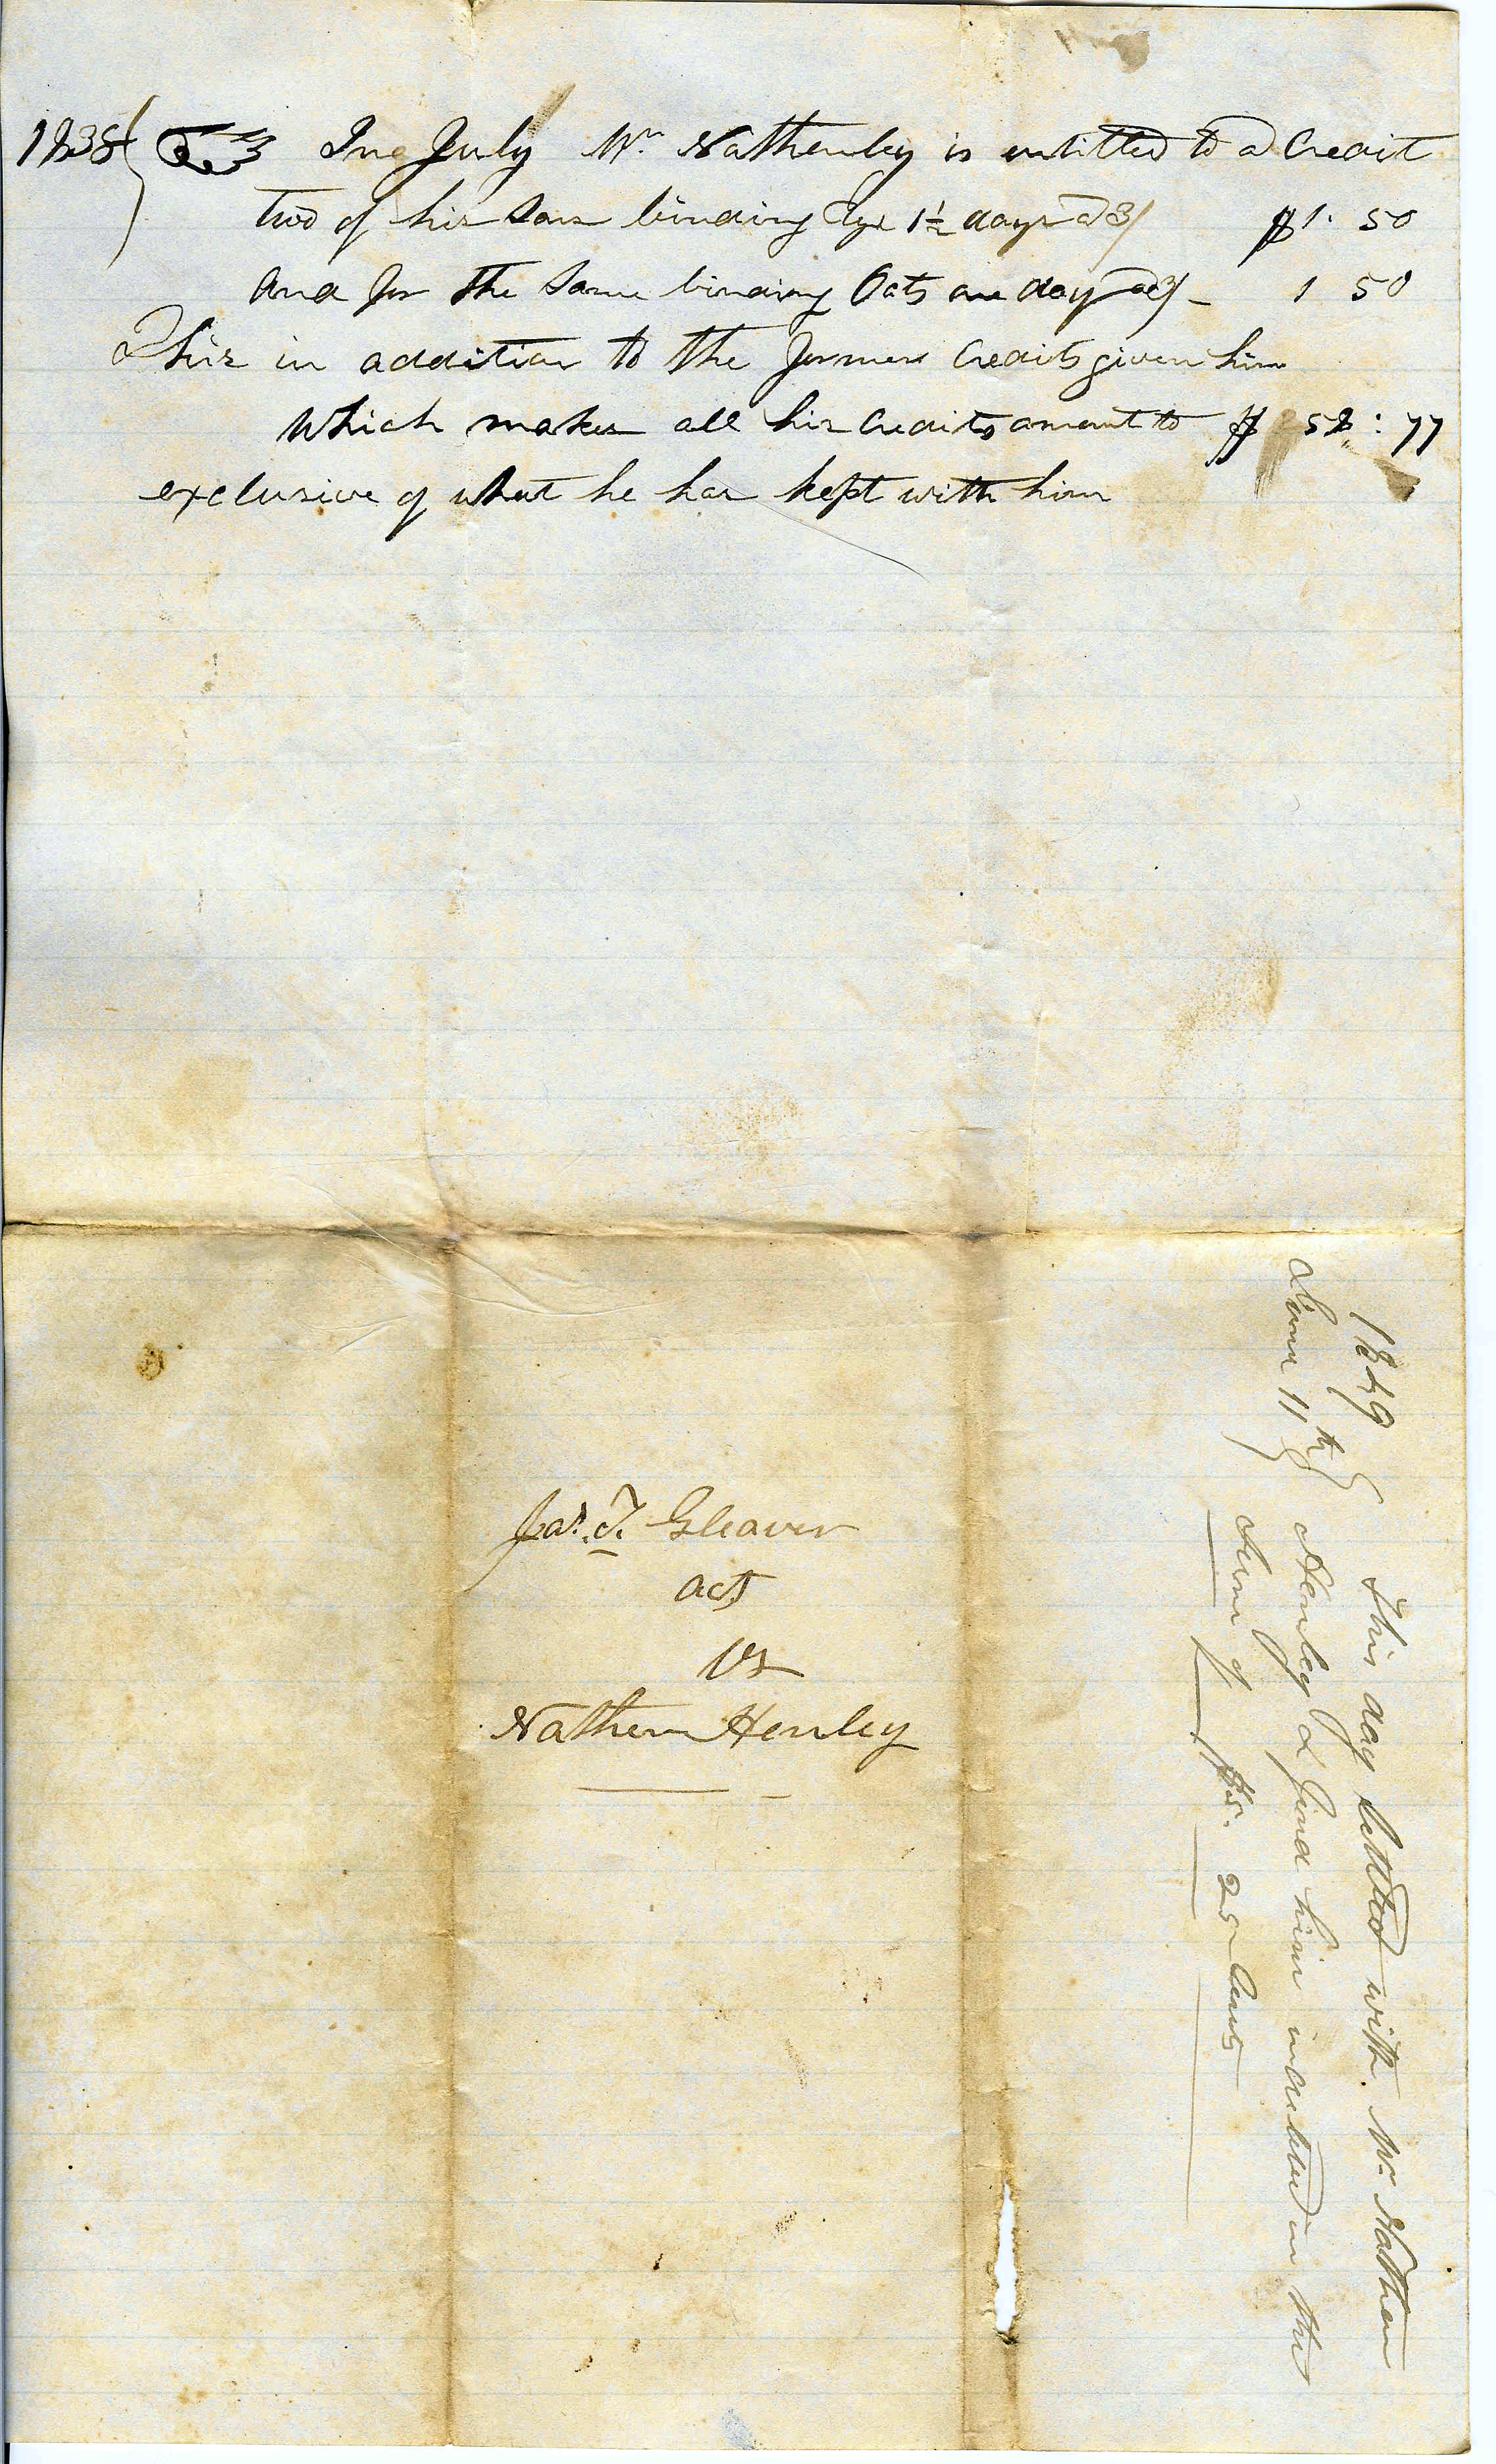 1838 In July Mr. Nathenley is entitled to a Credit
two of his Sons binding Rye 1½ days @ 3/ $1. 50
And for the Same binding Oats one day @ 3/ - 1 50
This in addition to the former Credits given him
Which makes all his Credits amount to $ 58 : 77
exclusive of what he has kept with him
Jas. T. Gleaver
act
vs
Nathen Henley
1849
11th This day settled with Mr Nathen
Henley & find him indebted in the
Sum of $5. 25 Cents